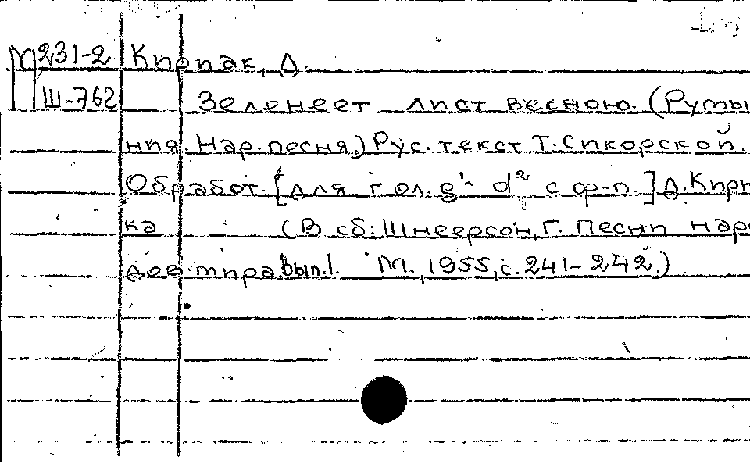 М231-2 Кирпак, Д.
Ш-762 Зеленеет лист весною. (Румы
ния. Нар. песня.) Рус. текст Т. Сикорской.
Обработ. [для гол. g'- d² с ф-п.] Д. Кирп
ка (В сб.: Шнеерсон, Г. Песни наро
дов мира. Вып.1. М., 1955, с. 241-242.)